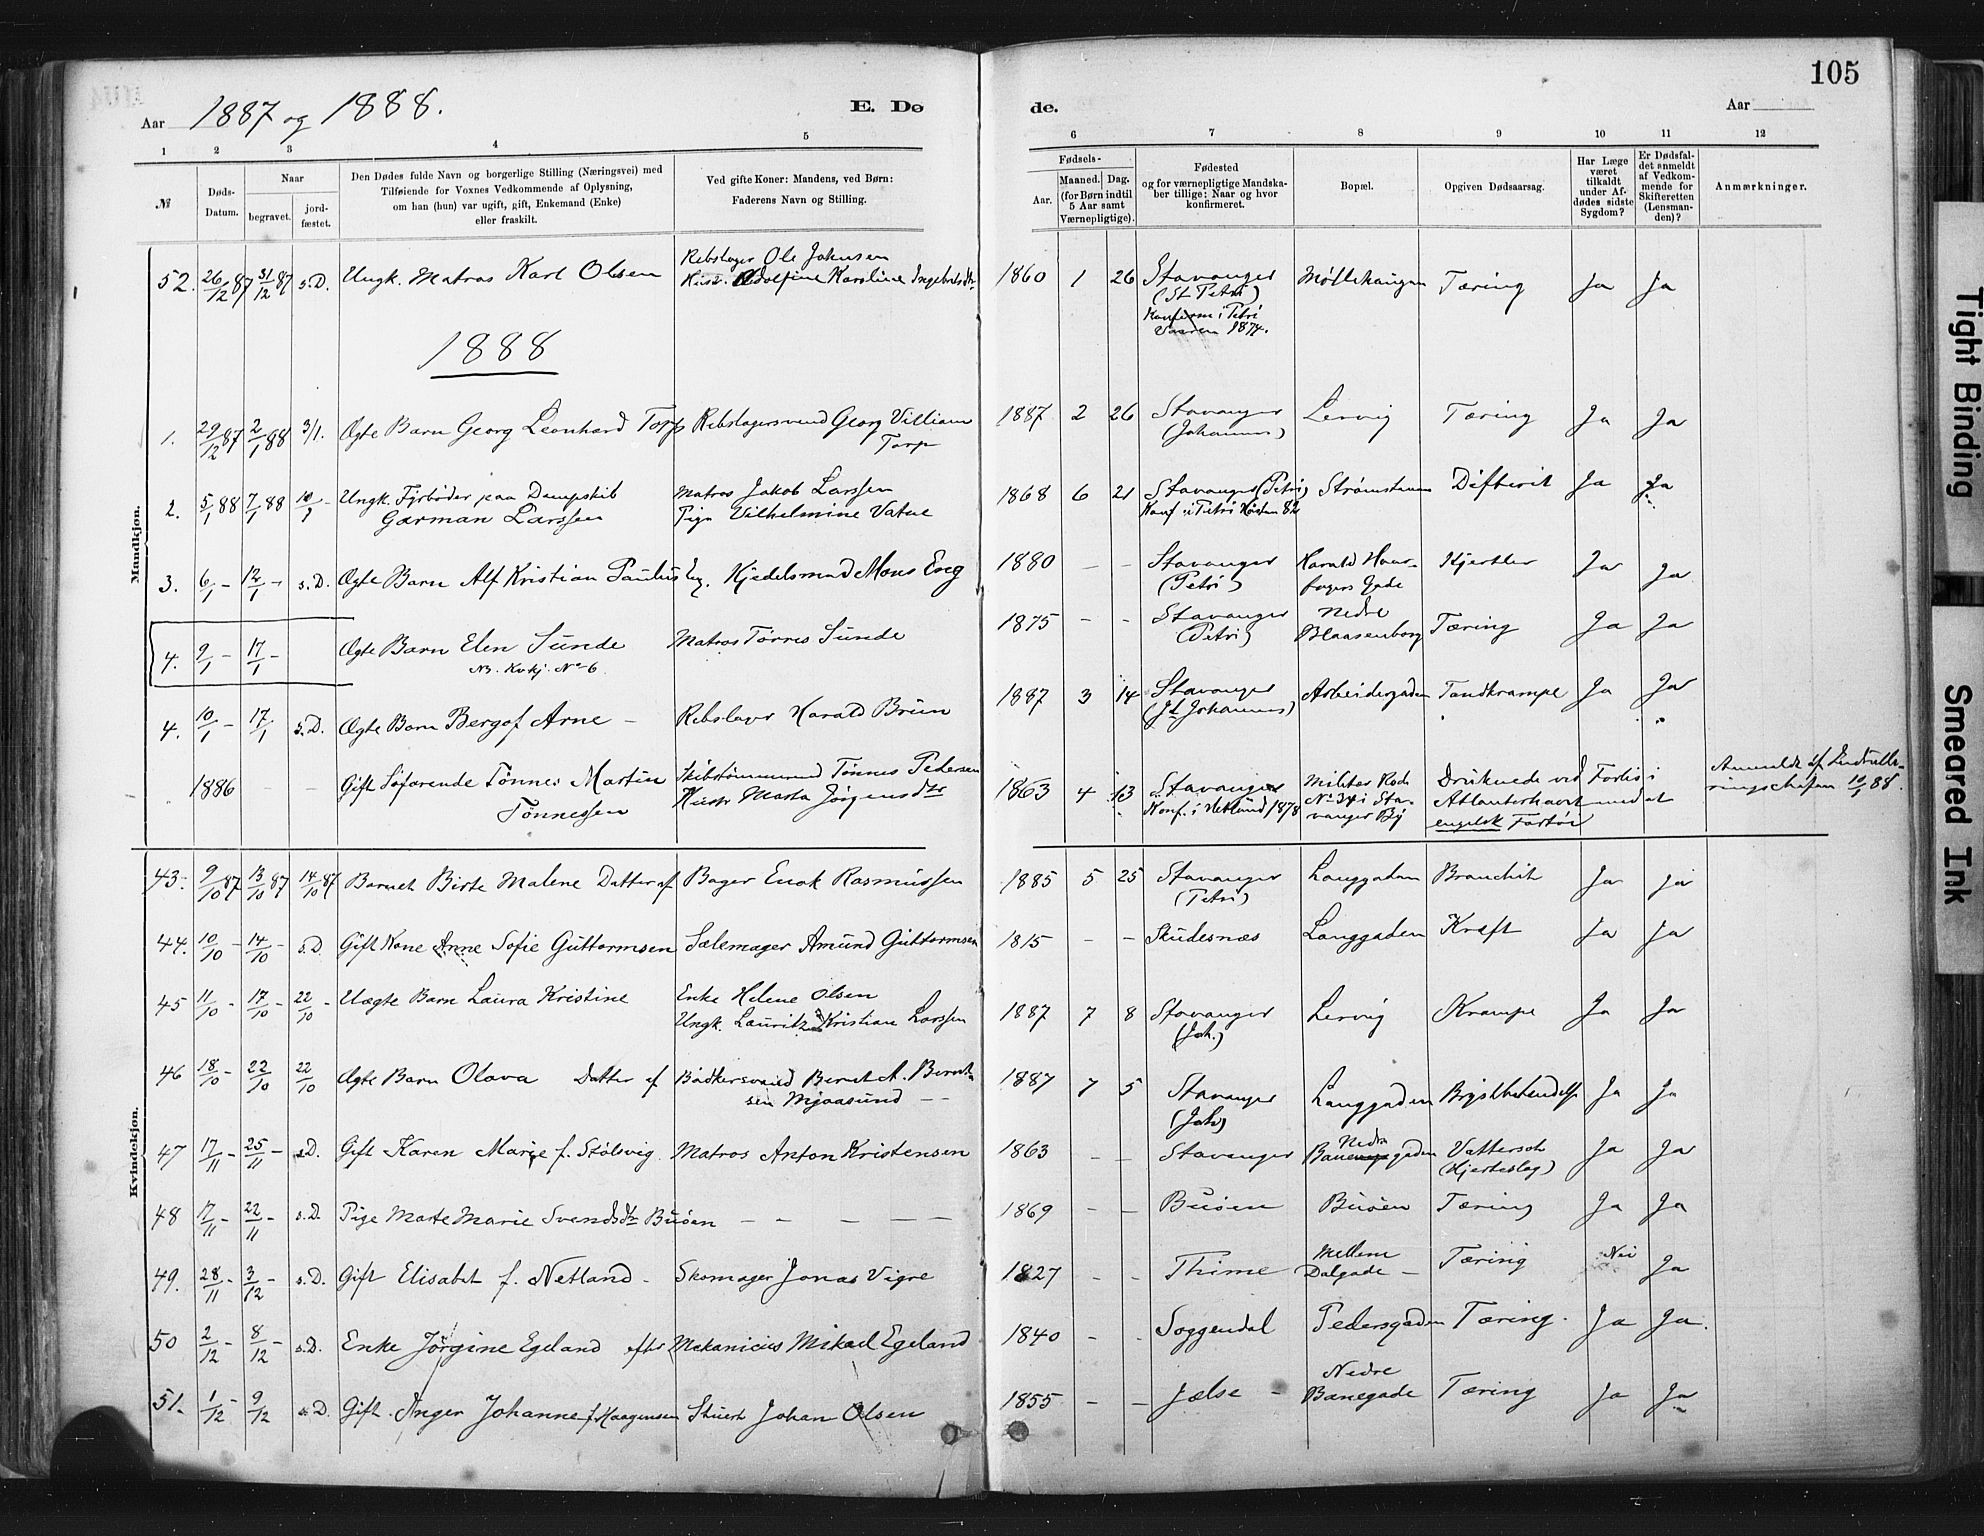 105
Aar 1887 og 1888.
E. Dø
de.
Aar
1 2 3 4 5
6 7 8 9 10 11 12
№
Døds-
Datum.
Naar
begravet.
jord-
fæstet.
Den Dødes fulde Navn og borgerlige Stilling (Næringsvei) med
Tilføiende for Voxnes Vedkommende af Oplysning,
om han (hun) var ugift, gift, Enkemand (Enke)
eller fraskilt.
Ved gifte Koner: Mandens, ved Børn:
Faderens Navn og Stilling.
Fødsels-
Aar.
Maaned. Dag.
(for Børn indtil
5 Aar samt
Værnepligtige).
Fødested
og for værnepligtige Mandska-
ber tillige: Naar og hvor
konfirmeret.
Bopæl.
Opgiven Dødsaarsag.
Har Læge
været
tilkaldt
under Af-
dødes sidste
Sygdom?
Er Dødsfal-
det anmeldt
af Vedkom-
mende for
Skifteretten
(Lensman-
den)?
Anmærkninger.
Mandkjøn.
52. 26/12 87 31/12 87 s.D. Ungk. Matros Karl Olsen
Rebslager Ole Johnsen
Hust. Adolfine Karoline Ingebretsdtr
1860 1 26 Stavanger Møllehaugen Tæring Ja Ja
(St Petri)
Konfirm i Petri
Vaaren 1874.
1888
1. 29/12 87 2/1 88 3/1. Ægte Barn Georg Leonhard Torp Rebslagersvend Georg Villiam
Torp
1887 2 26 Stavanger Lervig Tæring Ja Ja
(Johannes)
2. 5/1 88 7/1 88 10/1 - Ungk. Fyrbøder paa Dampskib
Garman Larssen
Matros Jakob Larssen
Pige Vilhelmine Vatne
1868 6 21 Stavanger (Petri) Strømstenen Difterit Ja Ja
Konf i Petri Høsten 82
3. 6/1 - 12/1 - s.D. Ægte Barn Alf Kristian Paulus Eeg. Kjedelsmed Mons Eeg
1880 - - Stavanger Harald Haar- Hjertler Ja Ja
(Petri) fagers Gade
4. 9/1 - 17/1 - Ægte Barn Elen Sunde Matros Tørres Sunde
NB. Kvkj. No 6
1875 - - Stavanger Nedre Tæring Ja Ja
(Petri) Blaasenborg
4. 10/1 - 17/1 s.D. Ægte Barn Bergof Arne - Rebslager Harald Brun
1887 3 14 Stavanger Arbeidergaden Tandkrampe Ja Ja
(St Johannes)
1886 - - Gift Søfarende Tønnes Martin
Tønnessen
Skibstømmermand Tønnes Pedersen
Hustr Marta Jørgensdtr
1863 4 13 Stavanger Militær Rod Druknede ved Forlis i
Konf. i Hetland 1878 No 34 i Sta- Atlanterhavet med et
vanger By engelsk Fartøi
Anmeldt af Indrulle-
ringschefen 10/1 88.
Kvindekjøn.
43. 9/10 87 13/10 87 14/10 87 Barnet Birte Malene Datter af Bager Enok Rasmussen
1885 5 25 Stavanger Langgaden Bronchit Ja Ja
(Petri)
44. 10/10 - 14/10 - s.D Gift Kone Anne Sofie Guttormsen Salemager Amund Guttormsen
1815 - - Skudesnæs Langgaden Kræft Ja Ja
45 11/10 - 17/10 - 22/10 - Uægte Barn Laura Kristine Enke Helene Olsen
Ungk. Lauritz Kristian Larssen
1887 7 8 Stavanger Lervig Krampe Ja Ja
(Joh.)
46 18/10 - 22/10 22/10 Ægte Barn Olava Datter af Bødkersvend Bernt A. Bernt-
sen Mjaasund - -
1887 7 5 Stavanger Langgaden Brystbetendelse Ja Ja
(Joh)
47 17/11 - 25/11 - s.D. Gift Karen Marie f. Stølsvig Matros Anton Kristensen
1863 - - Stavanger Nedre Banegaden Vattersot Ja Ja
(Hjerteslag)
48 17/11 - 22/11 - s.D. Pige Marte Marie Svendsdtr Buøen - - - - -
1869 - - Buøen Buøen Tæring Ja Ja
49. 28/11 - 3/12 - s.D. Gift Elisabet f. Netland - Skomager Jonas Vigre
1827 - - Thime Mellem Tæring Nei Ja
Dalgade -
50 2/12 - 8/12 - s.D. Enke Jørgine Egeland efter Mekanicus Mikael Egeland
1840 - - Soggendal Pedersgaden Tæring. Ja Ja.
51. 1/12 - 9/12 s.D. Gift. Anger Johanne f. Haagensen Stuert Johan Olsen
1855 - - Jælse - Nedre Tæring Ja Ja
Banegade
Tight Binding
Smeared Ink